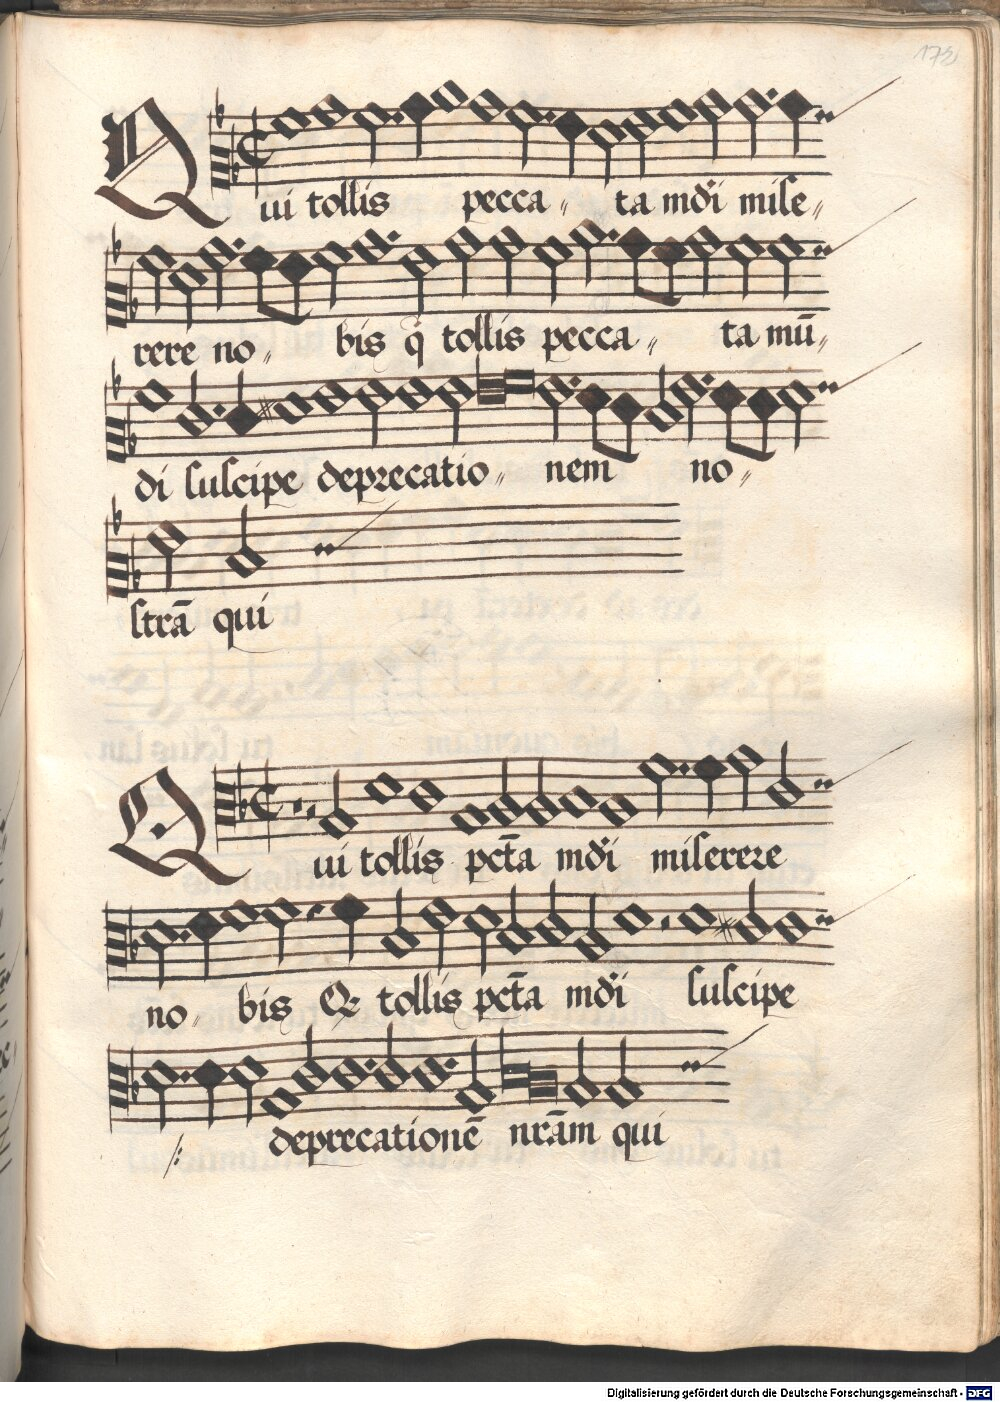 172
Qui tollis pecca〃 ta mđi mise〃
rere no〃 bis q̃ tollis pecca〃 ta mū〃
di suscipe deprecatio〃 nem no〃
strā qui
Qui tollis pct̄a mđi miserere
no〃 bis Q tollis pct̄a mđi suscipe
deprecationē nrām qui
Digitalisierung gefördert durch die Deutsche Forschungsgemeinschaft - DFG